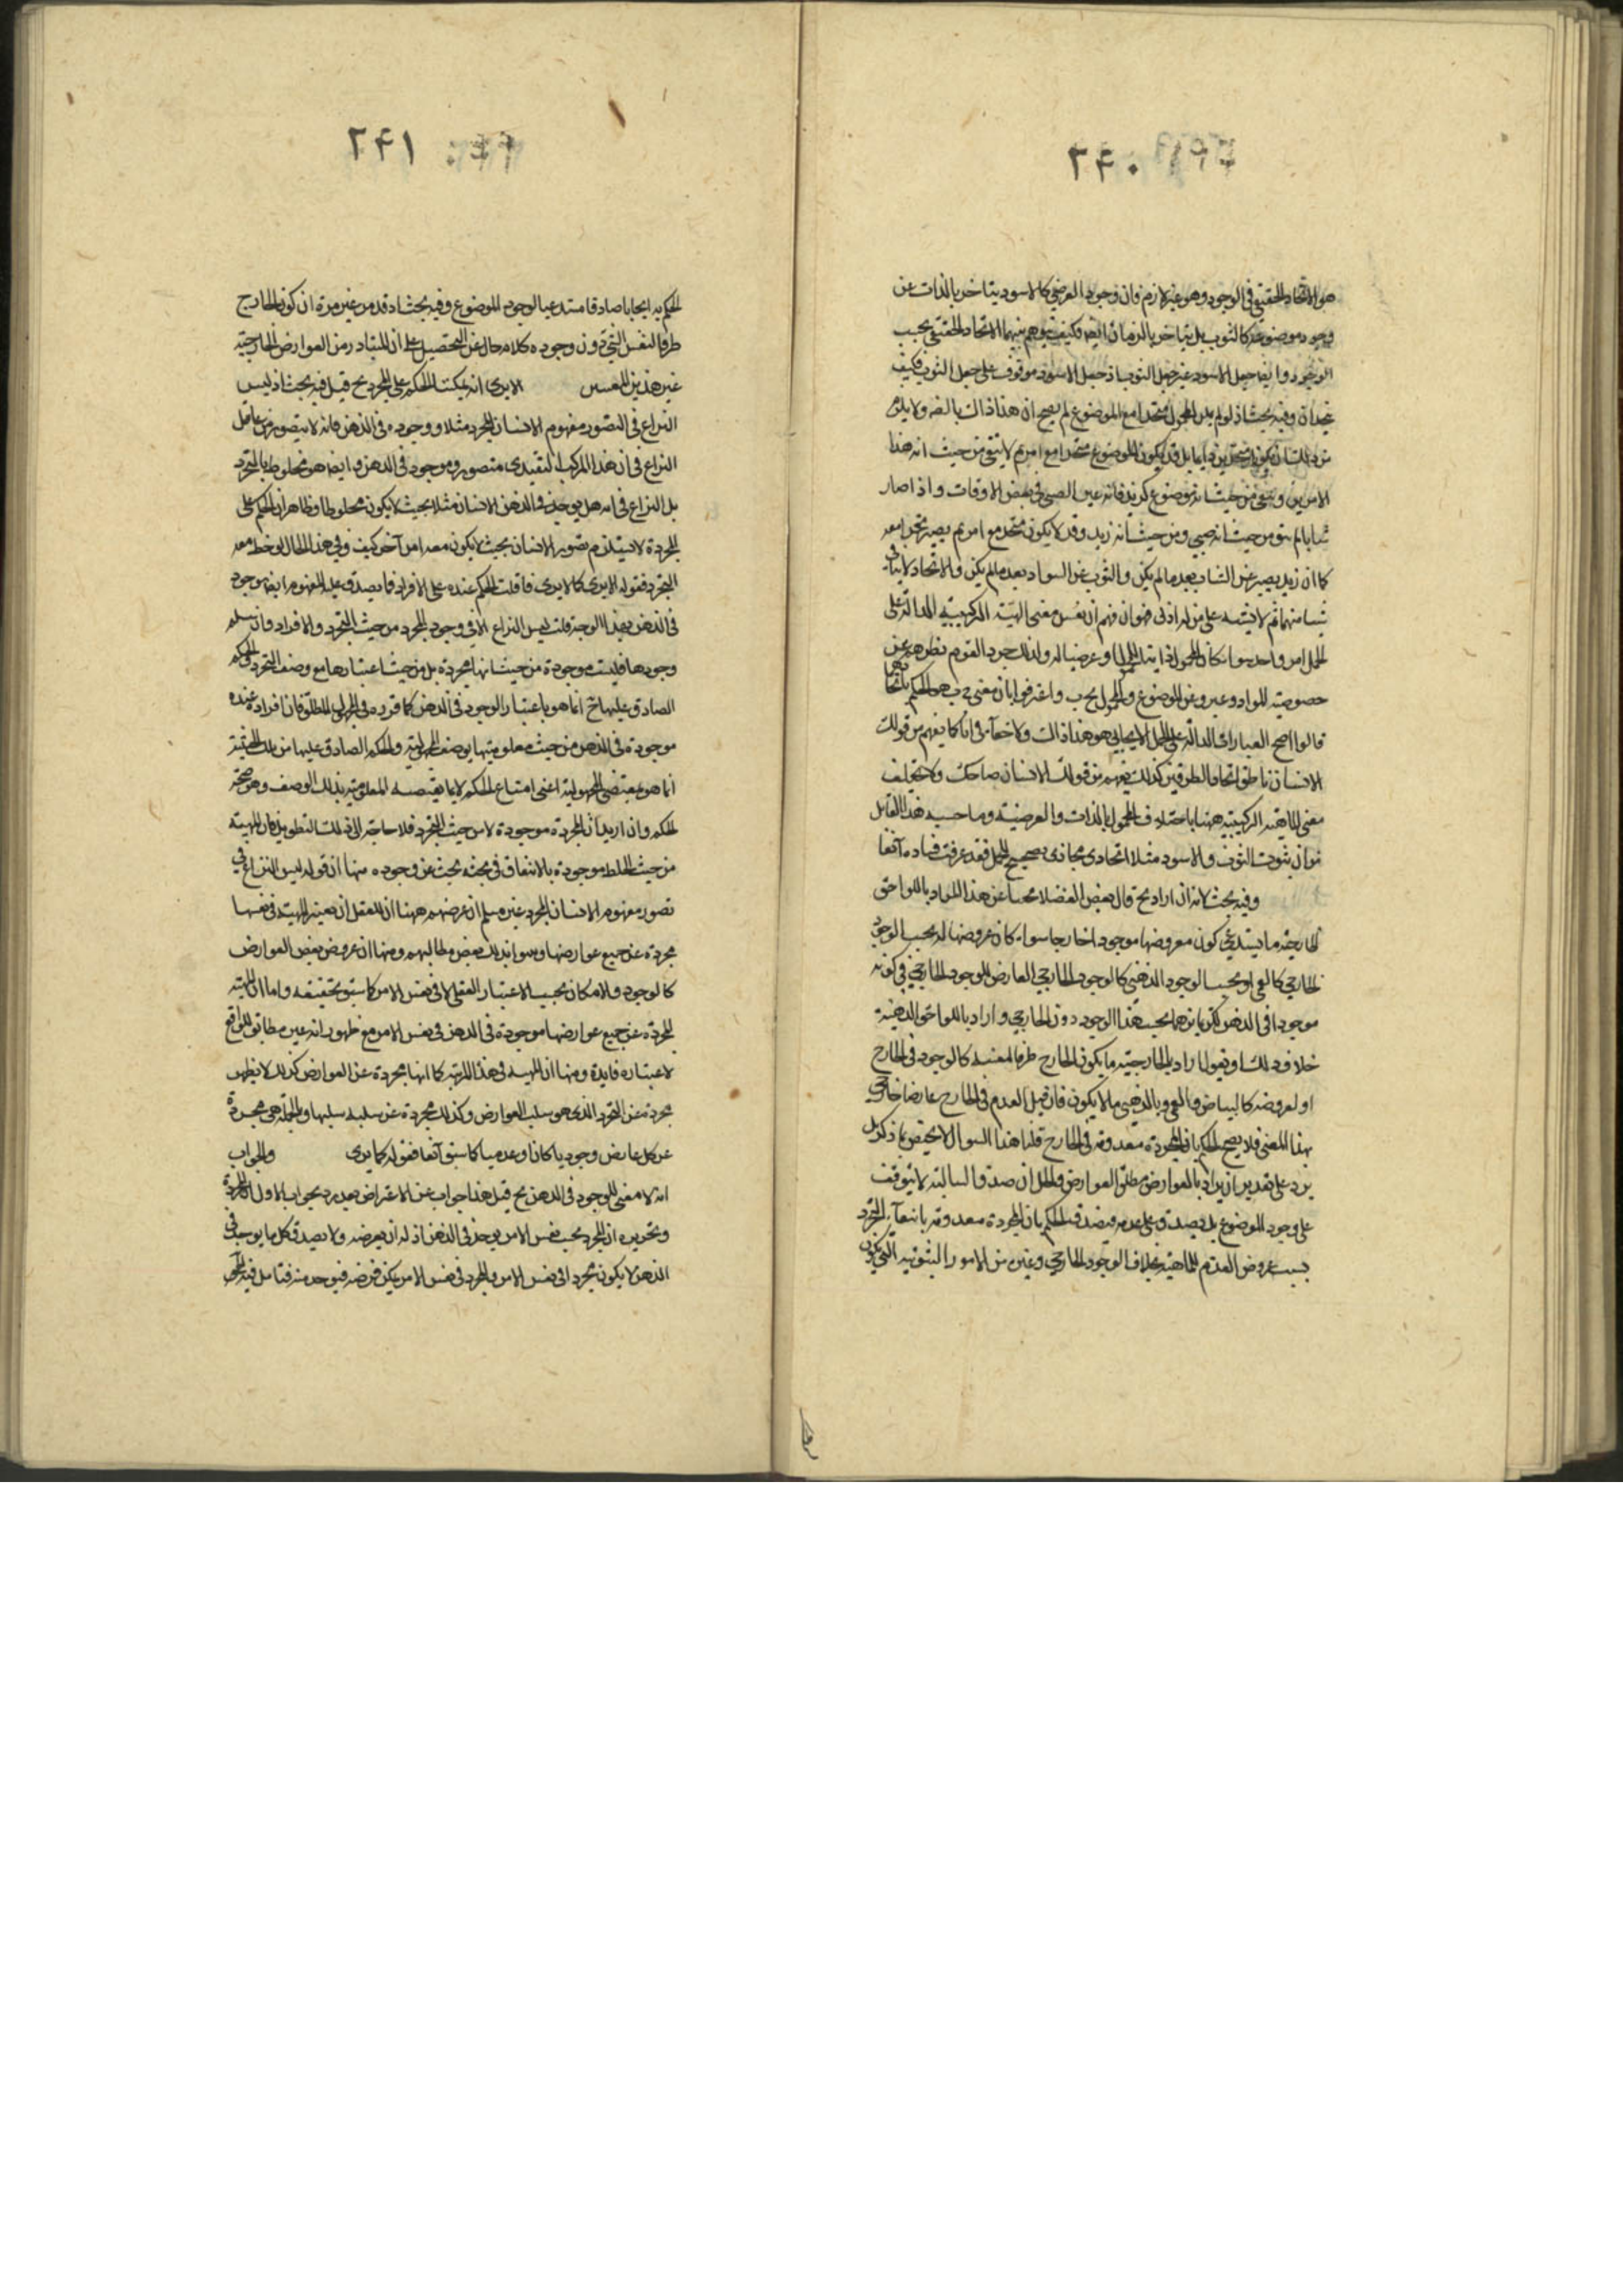 ٢٤٠
هو الاتحاد الحقيقي في الوجود وهو غير لازم فان وجود العرضي كالاسود يتاخر بالذات عن
وجود موضوعه كالثوب بل يتاخر بالزمان ايضا فكيف يتوهم بينهما الاتحاد الحقيقي بحسب
الوجود وايضا جعل الاسود غير جعل الثوب اذ جعل الاسود موقوف على جعل الثوب فكيف
يتحدان وفيه بحث اذ لو لم يكن المحمول متحدا مع الموضوع لم يصح ان هذا ذاك بالضرورة ولا يلزم
من ذلك ان يكونا متحدين دايما بل قد يكون الموضوع متحدا مع امر ثم لا يبقى من حيث انه هذا
الامر بل ويبقى من حيث انه موضوع كزيد فانه عين الصبي في بعض الاوقات واذا صار
شابا لم يبق من حيث انه صبي ومن حيث انه زيد وقد لا يكون متحدا مع امر ثم يصير متحدا معه
كما ان زيد يصير عين الشاب بعد ما لم يكن والثوب عين السواد بعد ما لم يكن والاتحاد لا ينافي
شيا منهما ثم لا يشتبه على من له ادنى فهم ان نفس معنى الهيئة التركيبية الدالة على
الحمل امر واحد سواء كان المحمول ذاتيا للموضوع او عرضيا له ولذلك جرد القوم نظرهم عن
خصوصية المواد وعبروا عن الموضوع والمحمول بج ب واعترفوا بان معنى ج ب هو الحكم باتحادهما
قالوا اصح العبارات الدالة على الحمل الايجابي هو هذا ذاك ولا خفاء في انا كما يفهم من قولك
الانسان ناطق اتحاد الطرفين كذلك يفهم من قولك الانسان ضاحك ولا يختلف
معنى الهيئة التركيبية ههنا باختلاف المحمول بالذات والعرضية وما حسبه هذا القايل
من ان ثبوت الثوب والاسود مثلا اتحادي مجازي يصحح الحمل فقد عرفت فساده آنفا
وفيه بحث لانه ان اراد الخ قال بعض الفضلاء مجيبا عن هذا المراد باللواحق
الخارجية ما يستدعي كون معروضها موجودا خارجا سواء كان عروضها له بحسب الوجود
الخارجي كالعمى او بحسب الوجود الذهني كالوجود الخارجي العارض للموجود الخارجي في كونه
موجودا في الذهن لكن بانهما بحسب هذا الوجود دون الخارجي واراد باللواحق الذهنية
خلاف ذلك او نقول اراد بالخارجية ما يكون الخارج ظرفا لنفسه كالوجود في الخارج
او لعروضه كالبياض والعمى وبالذهني ما لا يكون فان قيل العدم في الخارج عارضا خارجي
بهذا المعنى فلا يصح الحكم بان المجردة معدومة في الخارج قلنا هذا السوال لا يختص بما ذكر بل
يرد على تقدير ان يراد بالعوارض مطلق العوارض والحل ان صدق السالبة لا يتوقف
على وجود الموضوع بل يصدق على عدمه فيصدق الحكم بان المجردة معدومة بانتفاء التجرد
بسبب عروض العدم للماهية بخلاف الوجود الخارجي وغيره من الامور الثبوتية التي يكون
٢٤١
الحكم به ايجابا صادقا مستدعيا لوجود الموضوع وفيه بحث اذ قد مر غير مرة ان كون الخارج
ظرفا لنفس الشي دون وجوده كلام خال عن التحصيل على ان المتبادر من العوارض الخارجية
غير هذين القسمين الا يرى انه يمكننا الحكم على المجرد الخ قيل فيه بحث اذ ليس
النزاع في التصور مفهوم الانسان المجرد مثلا ووجوده في الذهن فانه لا يتصور من عاقل
النزاع في ان هذا المركب التقييدي متصور وموجود في الذهن وايضا هو مخلوط بالتجرد
بل النزاع في انه هل يوجد في الذهن الانسان مثلا بحيث لا يكون مخلوطا وظاهر ان الحكم على
المجردة لا يستلزم تصور الانسان بحيث لا يكون معه امر آخر كيف وفي هذا الحال لوحظ معه
التجرد فقوله الا يرى كما لا يرى فان قلت الحكم عنده على الافراد فما يصدق عليه المفهوم ايضا موجود
في الذهن بهذا الوجه قلت ليس النزاع الا في وجود المجرد من حيث التجرد والافراد وان سلم
وجودها فليست موجودة من حيث انها مجردة بل من حيث اعتبارها مع وصف التجرد والحكم
الصادق عليها ح انما هو باعتبار الوجود في الذهن كما قرره في المجهول المطلق فان افراده عنده
موجودة في الذهن من حيث معلوميتها بوصف المجهولية والحكم الصادق عليها من تلك الحيثية
انما هو بمقتضى المجهولية اعني امتناع الحكم لا بما يقتضيه المعلومية بذلك الوصف وهو صحة
الحكم وان اريد ان المجردة موجودة لا من حيث التجرد فلا حاجة الى ذلك التطويل فان الماهية
من حيث الخلط موجودة بالاتفاق في بحثه بحث عن وجوده منها ان قوله ليس النزاع في
تصور مفهوم الانسان المجرد غير مسلم اذ غرضهم ههنا ان للعقل ان يعتبر الماهية في نفسها
مجردة عن جميع عوارضها وبنوا بذلك بعض مطالبهم ومنها ان عروض بعض العوارض
كالوجود والامكان بحسب الاعتبار العقلي لا في نفس الامر كما سبق تحقيقه واما ان الماهية
المجردة عن جميع عوارضها موجودة في الذهن في نفس الامر مع ظهور انه غير مطابق للواقع
لا عتباره فايدة ومنها ان الماهية في هذه المرتبة كما انها مجردة عن العوارض كذلك لا يظهر
مجردة عن التجرد الذي هو سلب العوارض وكذلك مجردة عن سلبه سلبها وبالجملة هي مجردة
عن كل عارض وجوديا كان او عدميا كما سبق آنفا فقوله كما يرى والجواب
انه لا معنى للوجود في الذهن الخ قيل هذا جواب عن الاعتراض بعد رد جواب الاول بالمجردة
وتحريره ان المجرد بحسب نفس الامر يوجد في الذهن اذ له ان يعرضه ولا يصدق كل ما يوجد في
الذهن لا يكون مجردا في نفس الامر والمجرد في نفس الامر يمكن فرضه فيوجد منه فتامل فيه